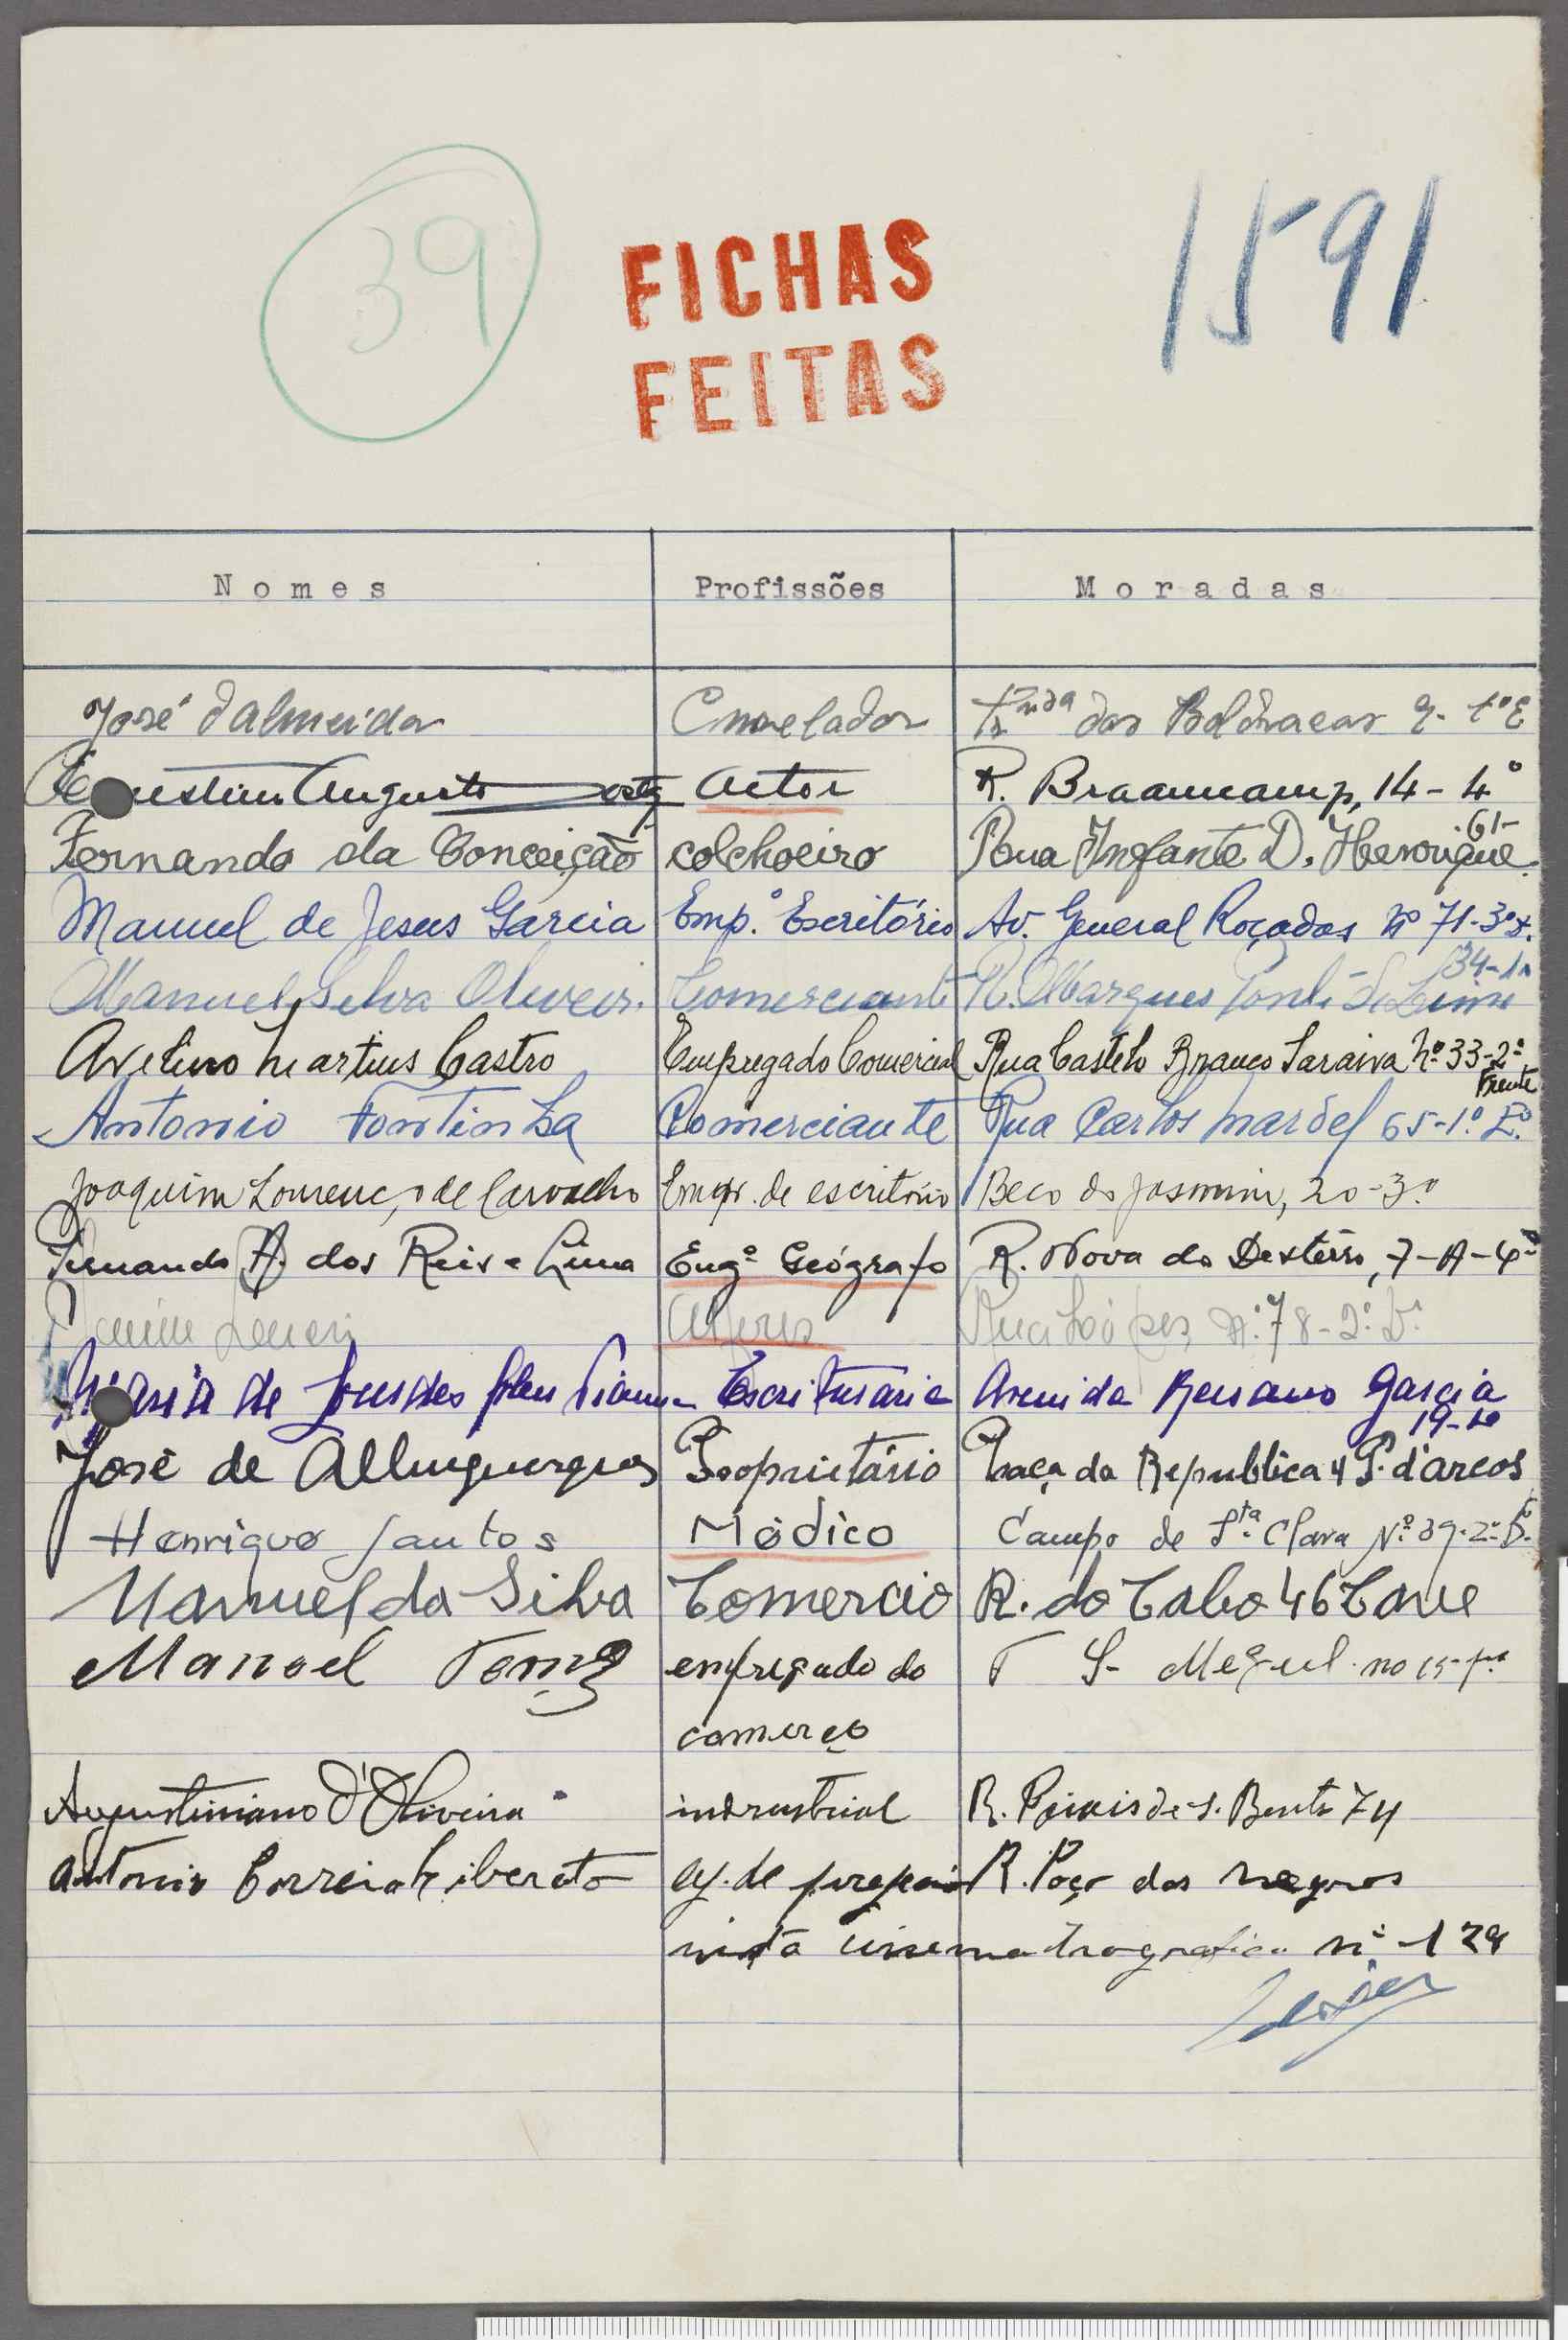 39
FICHAS
FEITAS
1591
Nomes Profissões Moradas
José d'Almeida das 2- 1º E
Augusto actor R. Braamcamp, 14-4º
61-
Fernando da Conceição colchoeiro Rua Infante D. Henrique
Manuel de Jesus Garcia Emp.º Escritório Av. General Roçadas Nº 71-3º D.
34-1º
Manuel Silva Oliveir. Comerciante R. Marques Ponte de Lima
Avelino Martins Castro Empregado Comercial Rua Castelo Branco Saraiva Nº 33-2º
Frente
Antonio Fontinha Comerciante Rua Carlos Mardel 65-1º E.º
Joaquim Lourenço de Carvalho Empr. de escritório Beco do Jasmim, 20-3º
Fernando A. dos Reis e Lima Engº Geógrafo R. Nova do Destêrro, 7-A-4º
Alferes Rua Lopes, nº 78-2º D.
Maria de Lourdes Escriturária Avenida Elias Garcia
19-1º
José de Albuquerque Proprietário Praça da Republica 4 P. d'arcos
Henrique Santos Médico Campo de Sta Clara Nº 39-2º D.
Manuel da Silva Comercio R. do Cabo 46 Cave
Manoel empregado do T S- Megul no 15-
comerço
Augustiniano D'Oliveira industrial R. Poiais de S. Bento 74
Antonio Correia Liberato R. Poço dos negros
cinematrografica nº -128